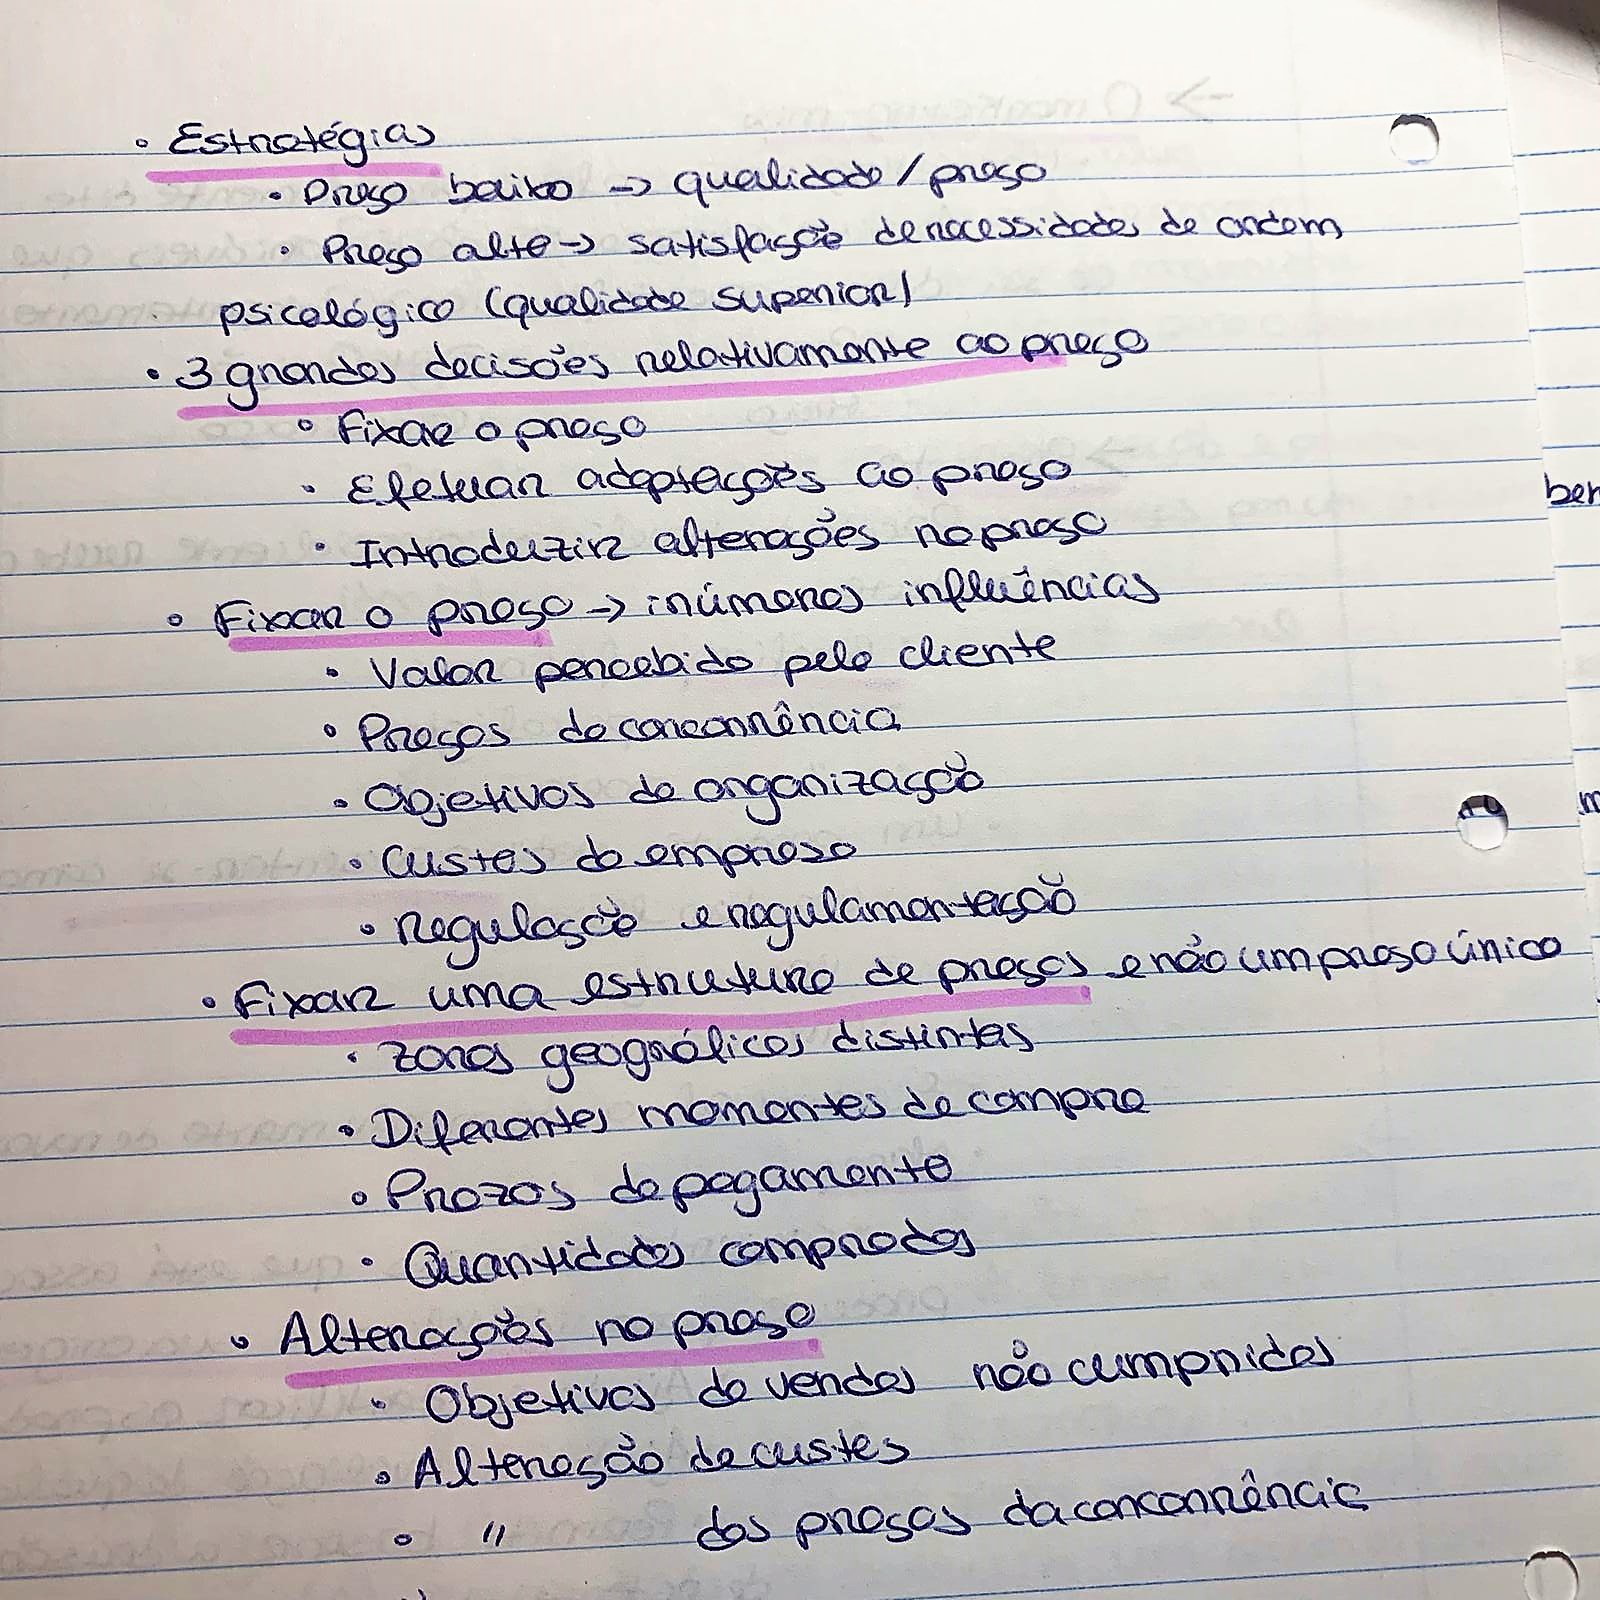 • Estratégias
• Preço baixo → qualidade/preço
• Preço alto → satisfação de necessidades de ordem
psicológico (qualidade superior)
• 3 grandes decisões relativamente ao preço
• Fixar o preço
• Efetuar adaptações ao preço
• Introduzir alterações no preço
• Fixar o preço → inúmeras influências
• Valor percebido pelo cliente
• Preços da concorrência
• Objetivos da organização
• Custos da empresa
• Regulação e regulamentação
• Fixar uma estrutura de preços e não um preço único
• Zonas geográficas distintas
• Diferentes momentos de compra
• Prazos de pagamento
• Quantidades compradas
• Alterações no preço
• Objetivos de vendas não cumpridos
• Alteração de custos
• " dos preços da concorrência